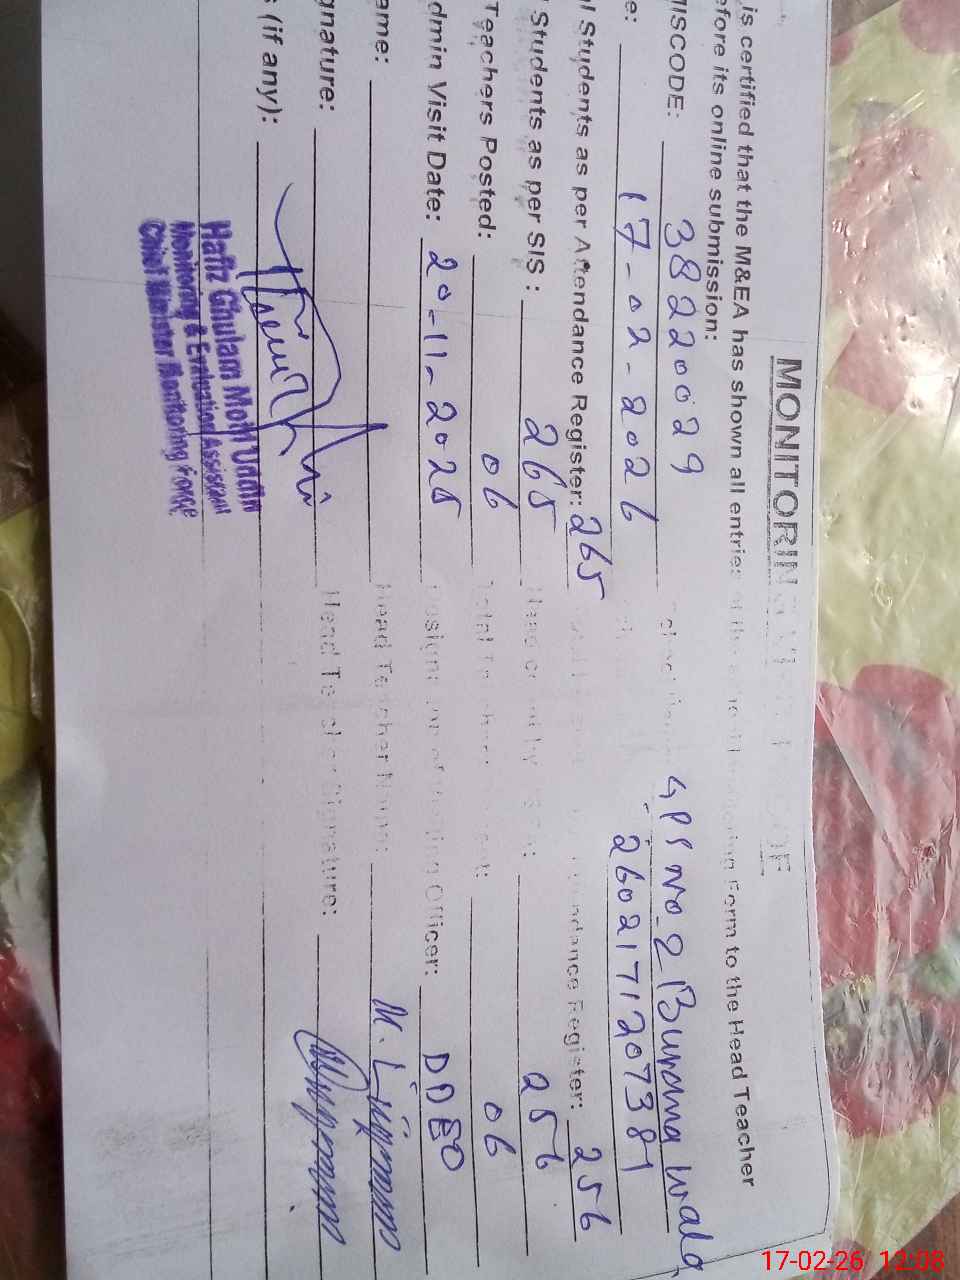 MONITORIN
is certified that the M&EA has shown all entries Form to the Head Teacher
efore its online submission:
ISCODE: 38220029 GPS No. 2 Burana Wala
e: 17-02-2026 260217120738
l Students as per Attendance Register: 265 Register: 256
Students as per SIS: 265 256
Teachers Posted: 06 06
dmin Visit Date: 20-11-2025 Officer: DDEO
ame: Head Teacher Name: M. Luqmam
gnature: Head Teacher Signature:
s (if any):
Hafiz Ghulam Moin Uddin
Monitoring & Evaluation Assistant
Chief Minister Monitoring Force
17-02-26 12:08